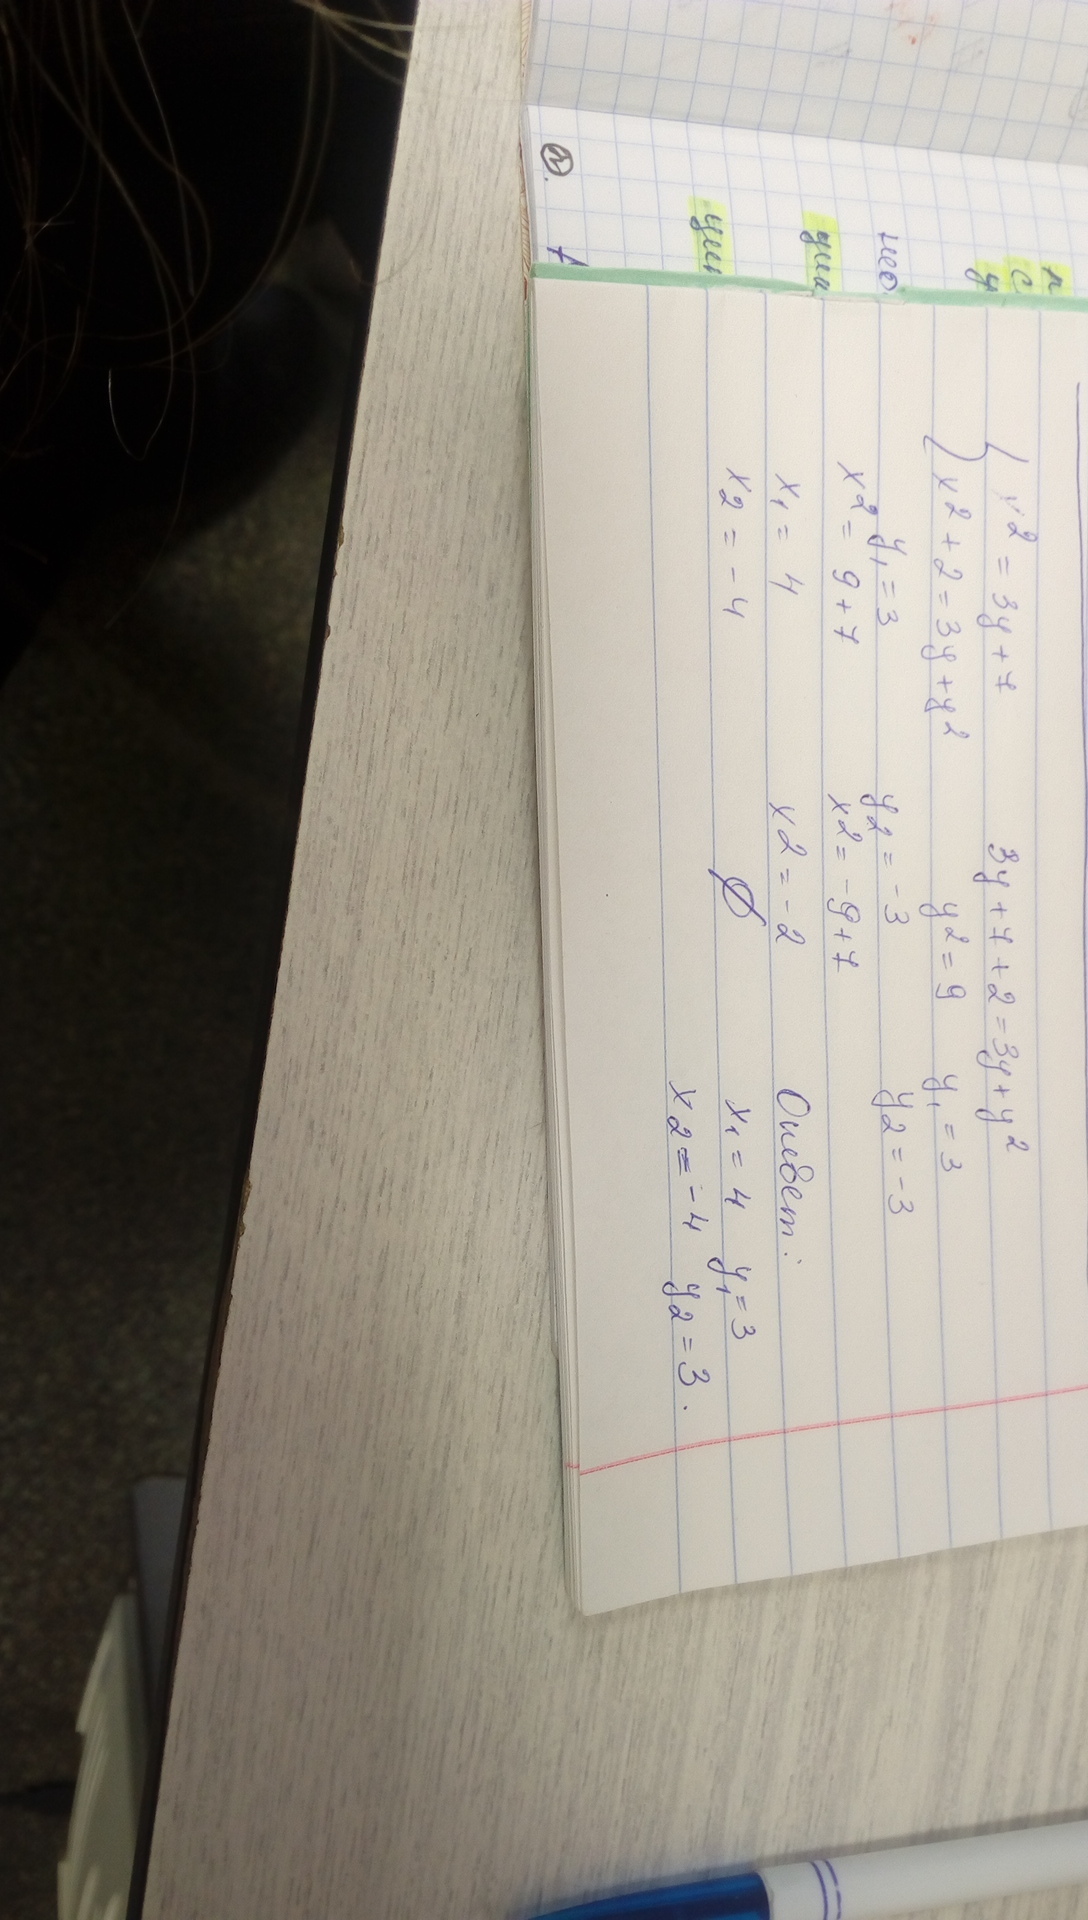 x2 = 3y + 7
x2 + 2 = 3y + y2
3y + 7 + 2 = 3y + y2
y2 = 9 y1 = 3
y2 = -3
y1 = 3
x2 = 9 + 7
x1 = 4
x2 = -4
y2 = -3
x2 = -9 + 7
x2 = -2
Ø
Ответ:
x1 = 4 y1 = 3
x2 = -4 y2 = 3.